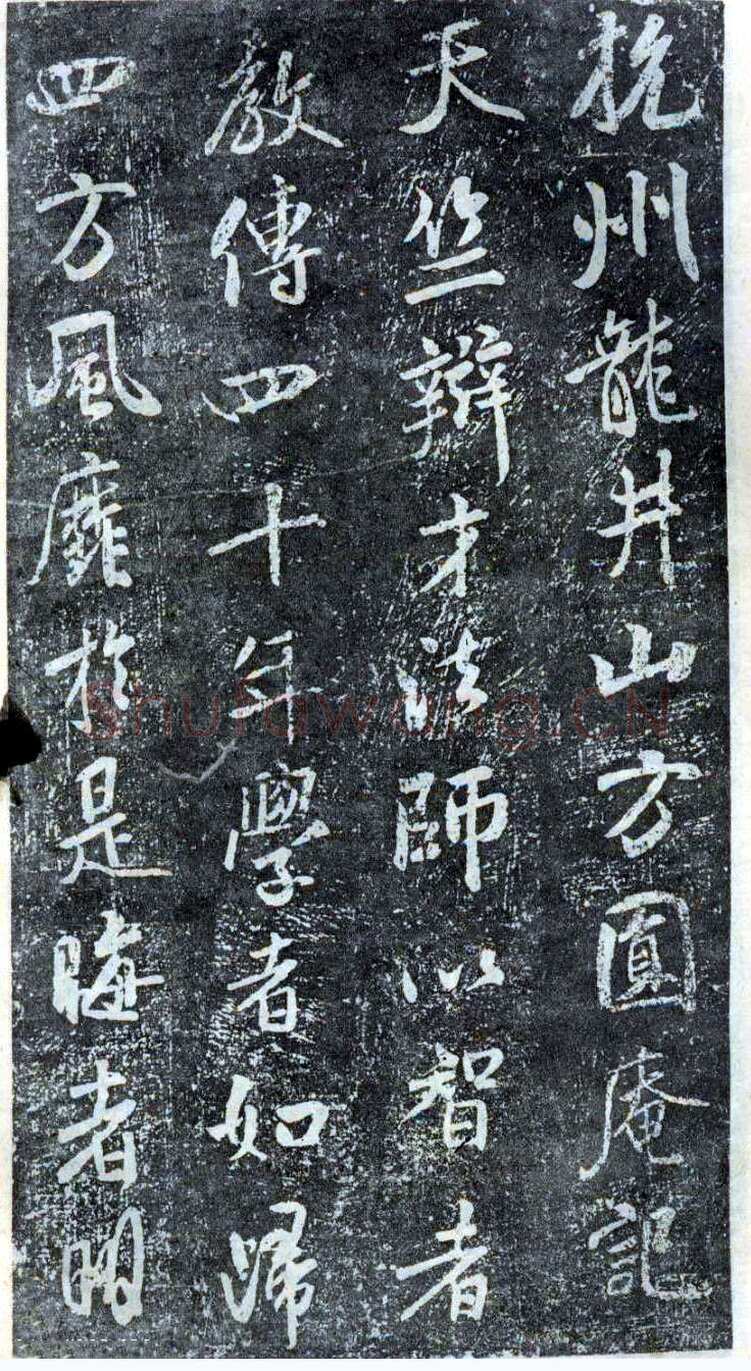 杭州龍井山方圓庵記
天竺辯才法師以智者
教傳四十年學者如歸
四方風靡於是晦者明
shufawang.CN